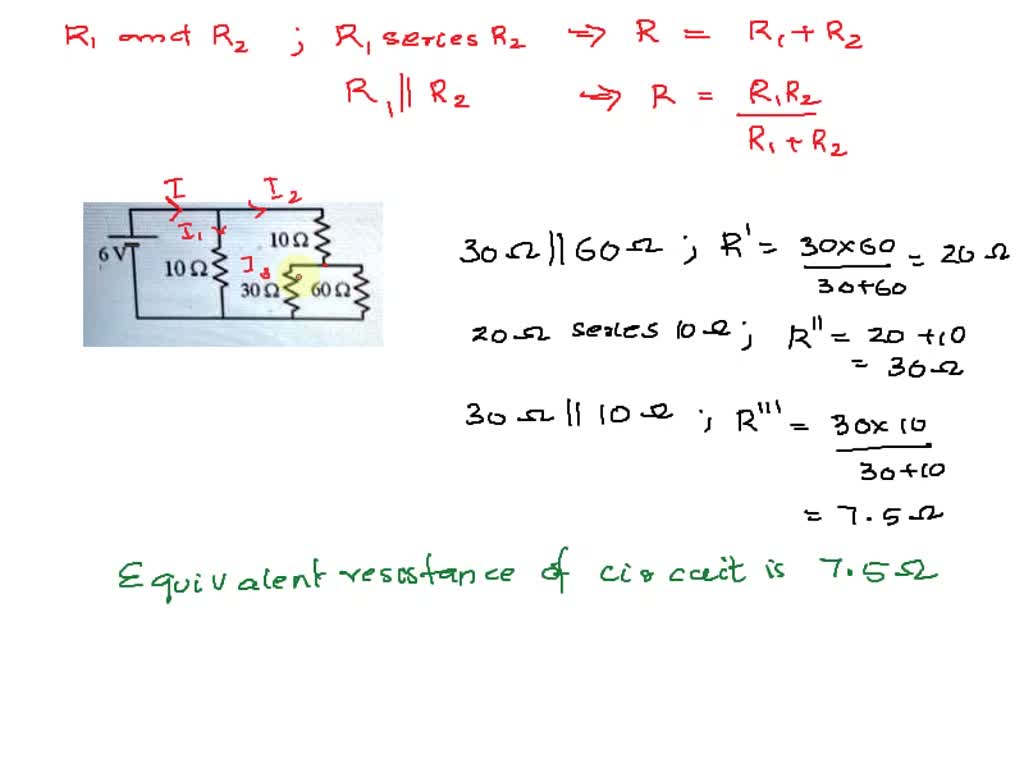 R₁ and R₂ ; R₁ series R₂ ⇒ R = R₁ + R₂
R₁ || R₂ ⇒ R = R₁R₂ / R₁ + R₂
I I₂
I₁ 10Ω
6 V 10Ω I₃
30Ω 60Ω
30Ω || 60Ω ; R' = 30×60 / 30+60 = 20Ω
20Ω series 10Ω ; R'' = 20 + 10
= 30Ω
30Ω || 10Ω ; R''' = 30×10 / 30+10
= 7.5Ω
Equivalent resistance of circuit is 7.5Ω